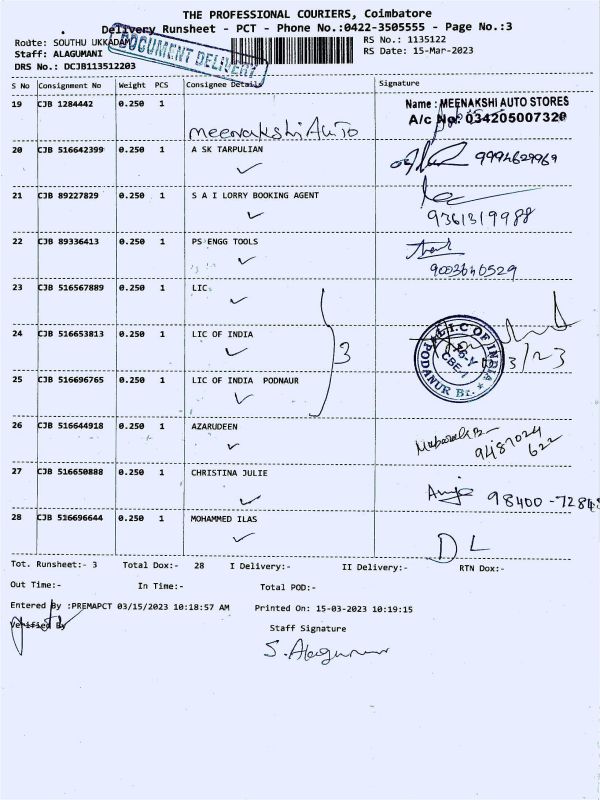 THE PROFESSIONAL COURIERS, Coimbatore
Delivery Runsheet - PCT - Phone No.:0422-3505555 - Page No.:3
Route: SOUTHU UKKADAM
RS No.: 1135122
Staff: ALAGUMANI
RS Date: 15-Mar-2023
DRS No.: DCJB113512203
DOCUMENT DELIVERY
S No Consignment No Weight PCS Consignee Details Signature
19 CJB 1284442 0.250 1 Meenakshi Auto
Name : MEENAKSHI AUTO STORES
A/c No: 034205007320
20 CJB 516642399 0.250 1 A SK TARPULIAN 9994629969
21 CJB 89227829 0.250 1 S A I LORRY BOOKING AGENT
9361319988
22 CJB 89336413 0.250 1 PS ENGG TOOLS
9003640529
23 CJB 516567889 0.250 1 LIC
24 CJB 516653813 0.250 1 LIC OF INDIA
3
L.I.C OF INDIA
PODANUR Br.
CBE-1
3/23
25 CJB 516696765 0.250 1 LIC OF INDIA PODNAUR
26 CJB 516644918 0.250 1 AZARUDEEN
9487024
622
27 CJB 516650888 0.250 1 CHRISTINA JULIE
98400-72848
28 CJB 516696644 0.250 1 MOHAMMED ILAS
DL
Tot. Runsheet:- 3 Total Dox:- 28 I Delivery:- II Delivery:- RTN Dox:-
Out Time:- In Time:- Total POD:-
Entered By :PREMAPCT 03/15/2023 10:18:57 AM Printed On: 15-03-2023 10:19:15
Verified By
Staff Signature
S. Alagumani